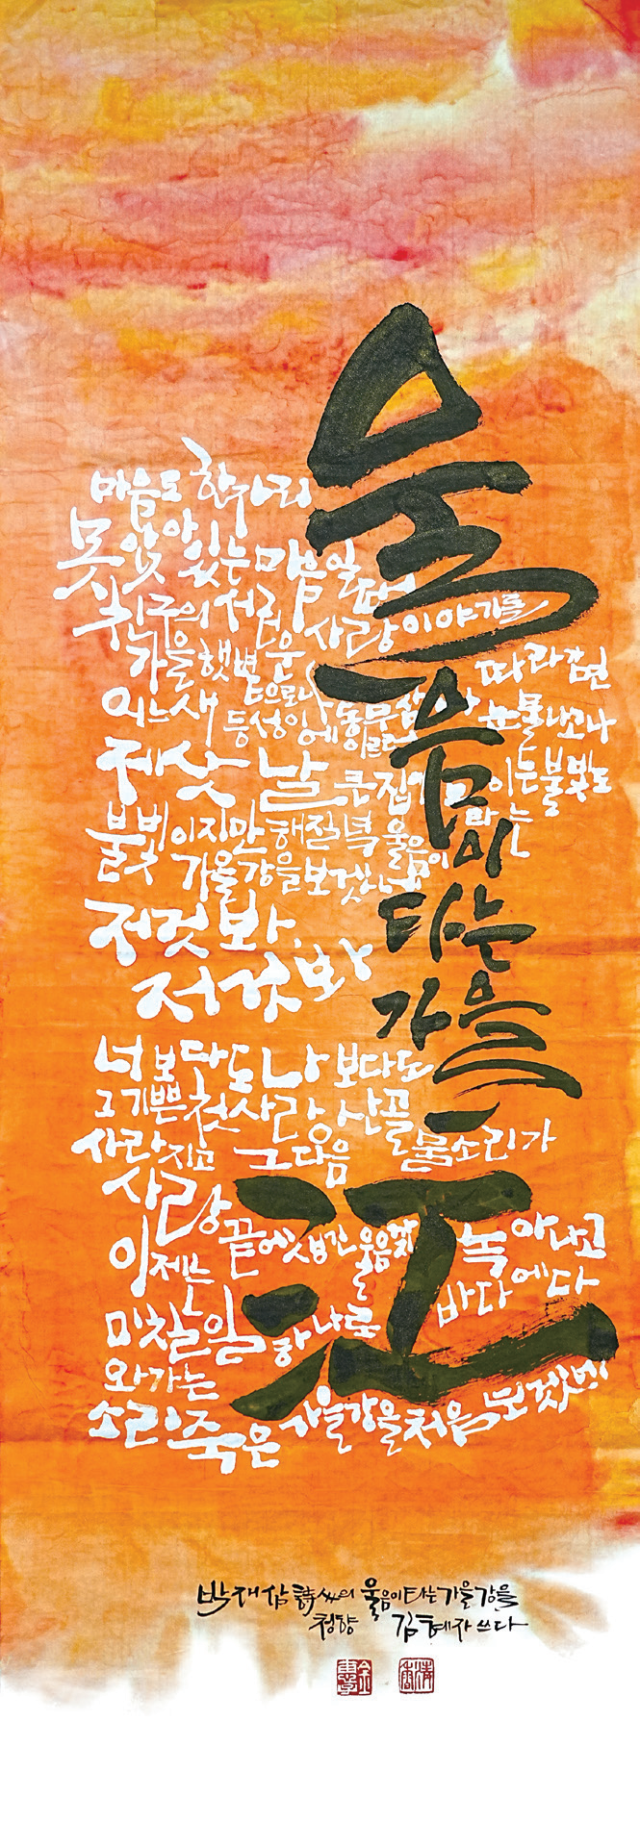 울음이
타는
가을
江
마음도 한자리
못 앉아 있는 마음일 때
친구의 서러운 사랑 이야기를
가을 햇볕으로나 동무삼아 따라가면
어느새 등성이에 이르러 눈물나고나
제삿날 큰집에 이는 불빛도
불빛이지만 해질녘 울음이 타는
가을 강을 보겠네
저것 봐,
저것 봐
너보다도 나보다도
그 기쁜 첫사랑 산골 물소리가
사라지고 그 다음
사랑 끝에 생긴 울음까지 녹아나고
이제는
미칠 일 하나로 바다에 다
와가는
소리 죽은 가을 강을 처음 보겠네
박재삼 詩人의 울음이 타는 가을강을
청향 김혜자 쓰다